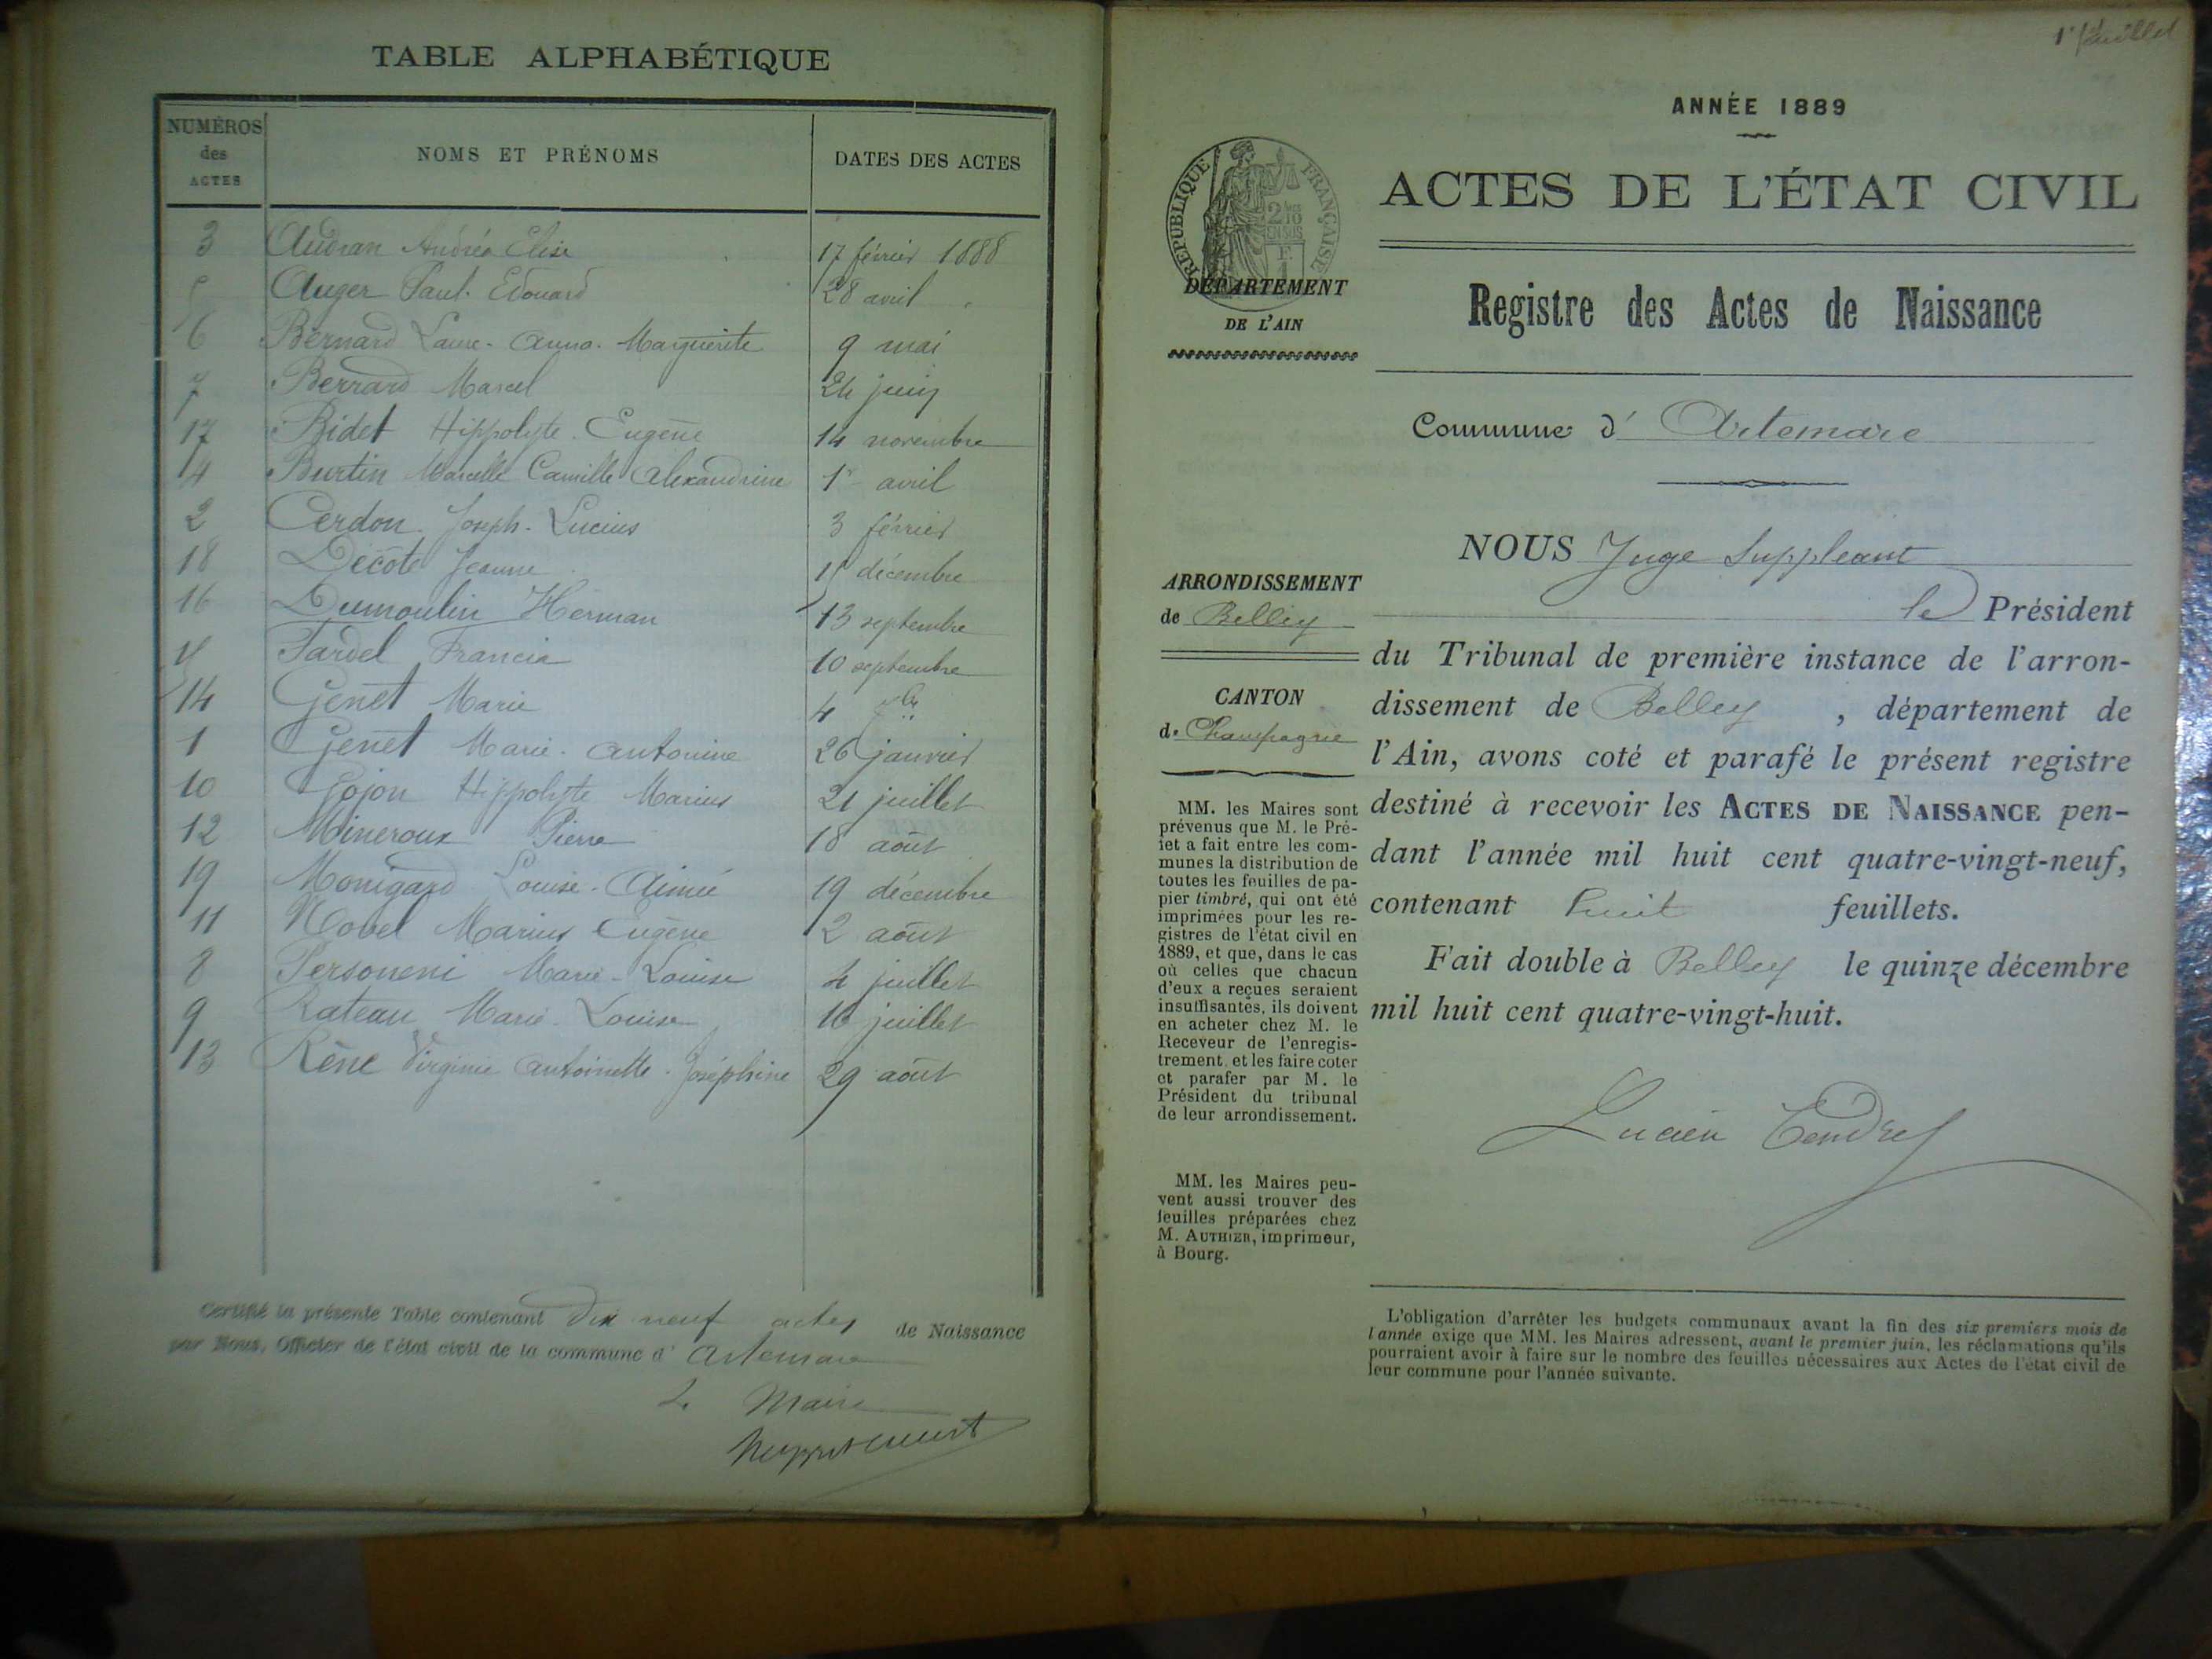 TABLE ALPHABÉTIQUE
NUMÉROS des ACTES
NOMS ET PRÉNOMS
DATES DES ACTES
3 Audran Andréa Elise 17 février 1888
5 Auger Paul. Edouard 28 avril
6 Bernard Laure. Anna. Marguerite 9 mai
7 Berrard Marcel 24 juin
17 Bidet Hippolyte. Eugène 14 novembre
4 Burtin Marcelle Camille Alexandrine 1r avril
2 Cerdon Joseph. Lucius 3 février
18 Décote Jeanne décembre
16 Dumoulin Herman 13 septembre
Fardel Francia 10 septembre
14 Genet Marie 4 7bre
1 Genet Marie. Antonine 26 janvier
10 Gojon Hippolyte Marius 21 juillet
12 Mineroux Pierre 18 août
19 Monigard Louise. Aimée 19 décembre
11 Novel Marius Eugène 2 août
8 Personeni Marie-Louise 4 juillet
9 Rateau Marie Louise 16 juillet
13 Rène Virginie Antoinette. Joséphine 29 août
Certifié la présente Table contenant dix neuf actes de Naissance
par Nous, Officier de l'état civil de la commune d' Artemare
Le Maire
1r feuillet
ANNÉE 1889
RÉPUBLIQUE FRANÇAISE
ACTES DE L'ÉTAT CIVIL
DÉPARTEMENT
DE L'AIN
Registre des Actes de Naissance
Commune d' Artemare
NOUS Juge Suppléant
ARRONDISSEMENT
de Belley
le Président
du Tribunal de première instance de l'arron-
dissement de Belley , département de
l'Ain, avons coté et parafé le présent registre
destiné à recevoir les ACTES DE NAISSANCE pen-
dant l'année mil huit cent quatre-vingt-neuf,
contenant huit feuillets.
Fait double à Belley le quinze décembre
mil huit cent quatre-vingt-huit.
Lucien Tendret
CANTON
de Champagne
MM. les Maires sont
prévenus que M. le Pré-
fet a fait entre les com-
munes la distribution de
toutes les feuilles de pa-
pier timbré, qui ont été
imprimées pour les re-
gistres de l'état civil en
1889, et que, dans le cas
où celles que chacun
d'eux a reçues seraient
insuffisantes, ils doivent
en acheter chez M. le
Receveur de l'enregis-
trement, et les faire coter
et parafer par M. le
Président du tribunal
de leur arrondissement.
MM. les Maires peu-
vent aussi trouver des
feuilles préparées chez
M. AUTHIER, imprimeur,
à Bourg.
L'obligation d'arrêter les budgets communaux avant la fin des six premiers mois de
l'année exige que MM. les Maires adressent, avant le premier juin, les réclamations qu'ils
pourraient avoir à faire sur le nombre des feuilles nécessaires aux Actes de l'état civil de
leur commune pour l'année suivante.